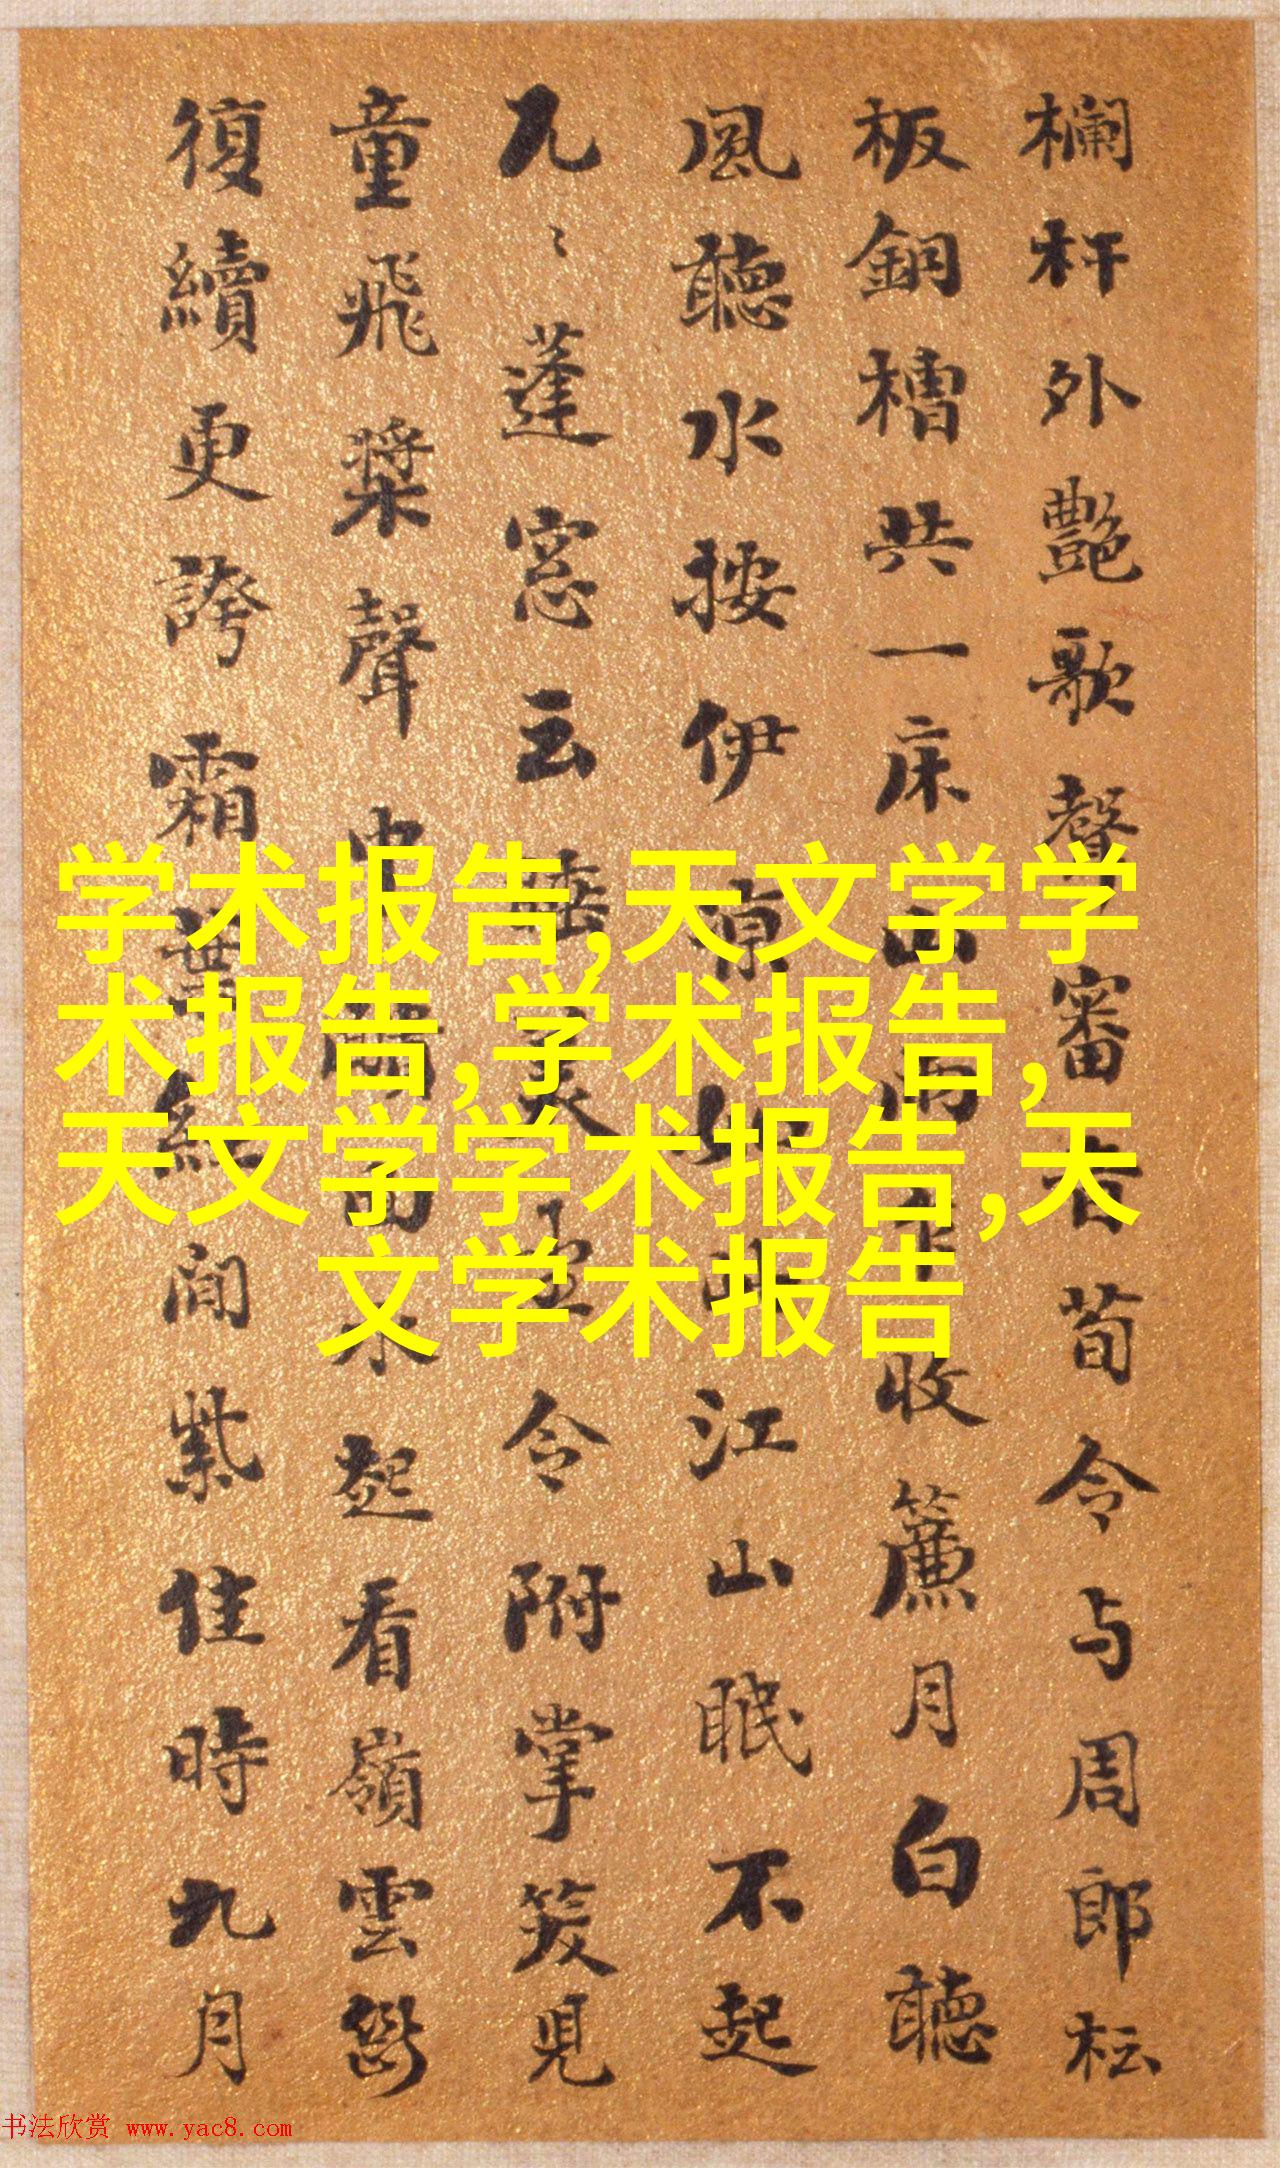 欄杆外艷歌聲審音荀令与周郎枟
板銅槽共一床山雨乍收簾月白聽
風聽水按伊涼 江山眠不起
九〻蓬窓云 令附掌笑見
童飛槳聲中 面水起看嶺雲
復續更誇霜葉紅間紫佳時九月
学术报告,天文学学
术报告,学术报告,
天文学学术报告,天
文学术报告
书法欣赏 www.yac8.com